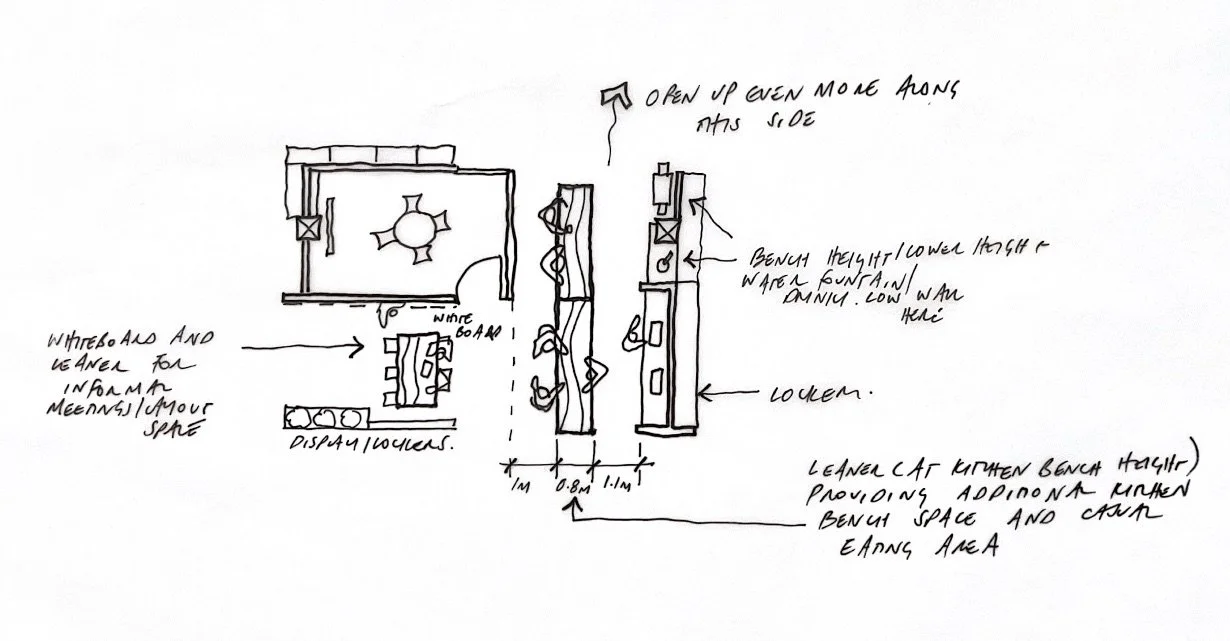 OPEN UP EVEN MORE ALONG
THIS SIDE
BENCH HEIGHT/LOWER HEIGHT
WATER FOUNTAIN/
LOW WALL
HERE
WHITE
BOARD
WHITEBOARD AND
LEANER FOR
INFORMAL
MEETINGS/LAYOUT
SPACE
DISPLAY/LOCKERS.
LOCKERS.
1M 0.8M 1.1M
LEANER (AT KITCHEN BENCH HEIGHT)
PROVIDING ADDITIONAL KITCHEN
BENCH SPACE AND CASUAL
EATING AREA